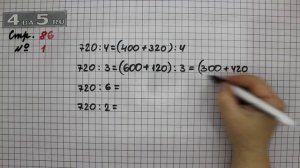 4 BA 5 RU
Стр. 86
№ 1
720 : 4 = (400 + 320) : 4
720 : 3 = (600 + 120) : 3 = (300 + 420
720 : 6 =
720 : 2 =